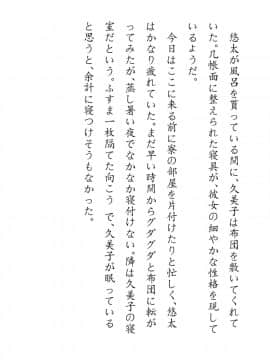 悠太が風呂を貰っている間に、久美子は布団を敷いてくれて
いた。几帳面に整えられた寝具が、彼女の細やかな性格を現して
いるようだ。
　今日はここに来る前に寮の部屋を片付けたりと忙しく、悠太
はかなり疲れていた。まだ早い時間からグダグダと布団に転が
ってみたが、蒸し暑い夜でなかなか寝付けない。隣は久美子の寝
室だという。ふすま一枚隔てた向こうで、久美子が眠っている
と思うと、余計に寝つけそうもなかった。